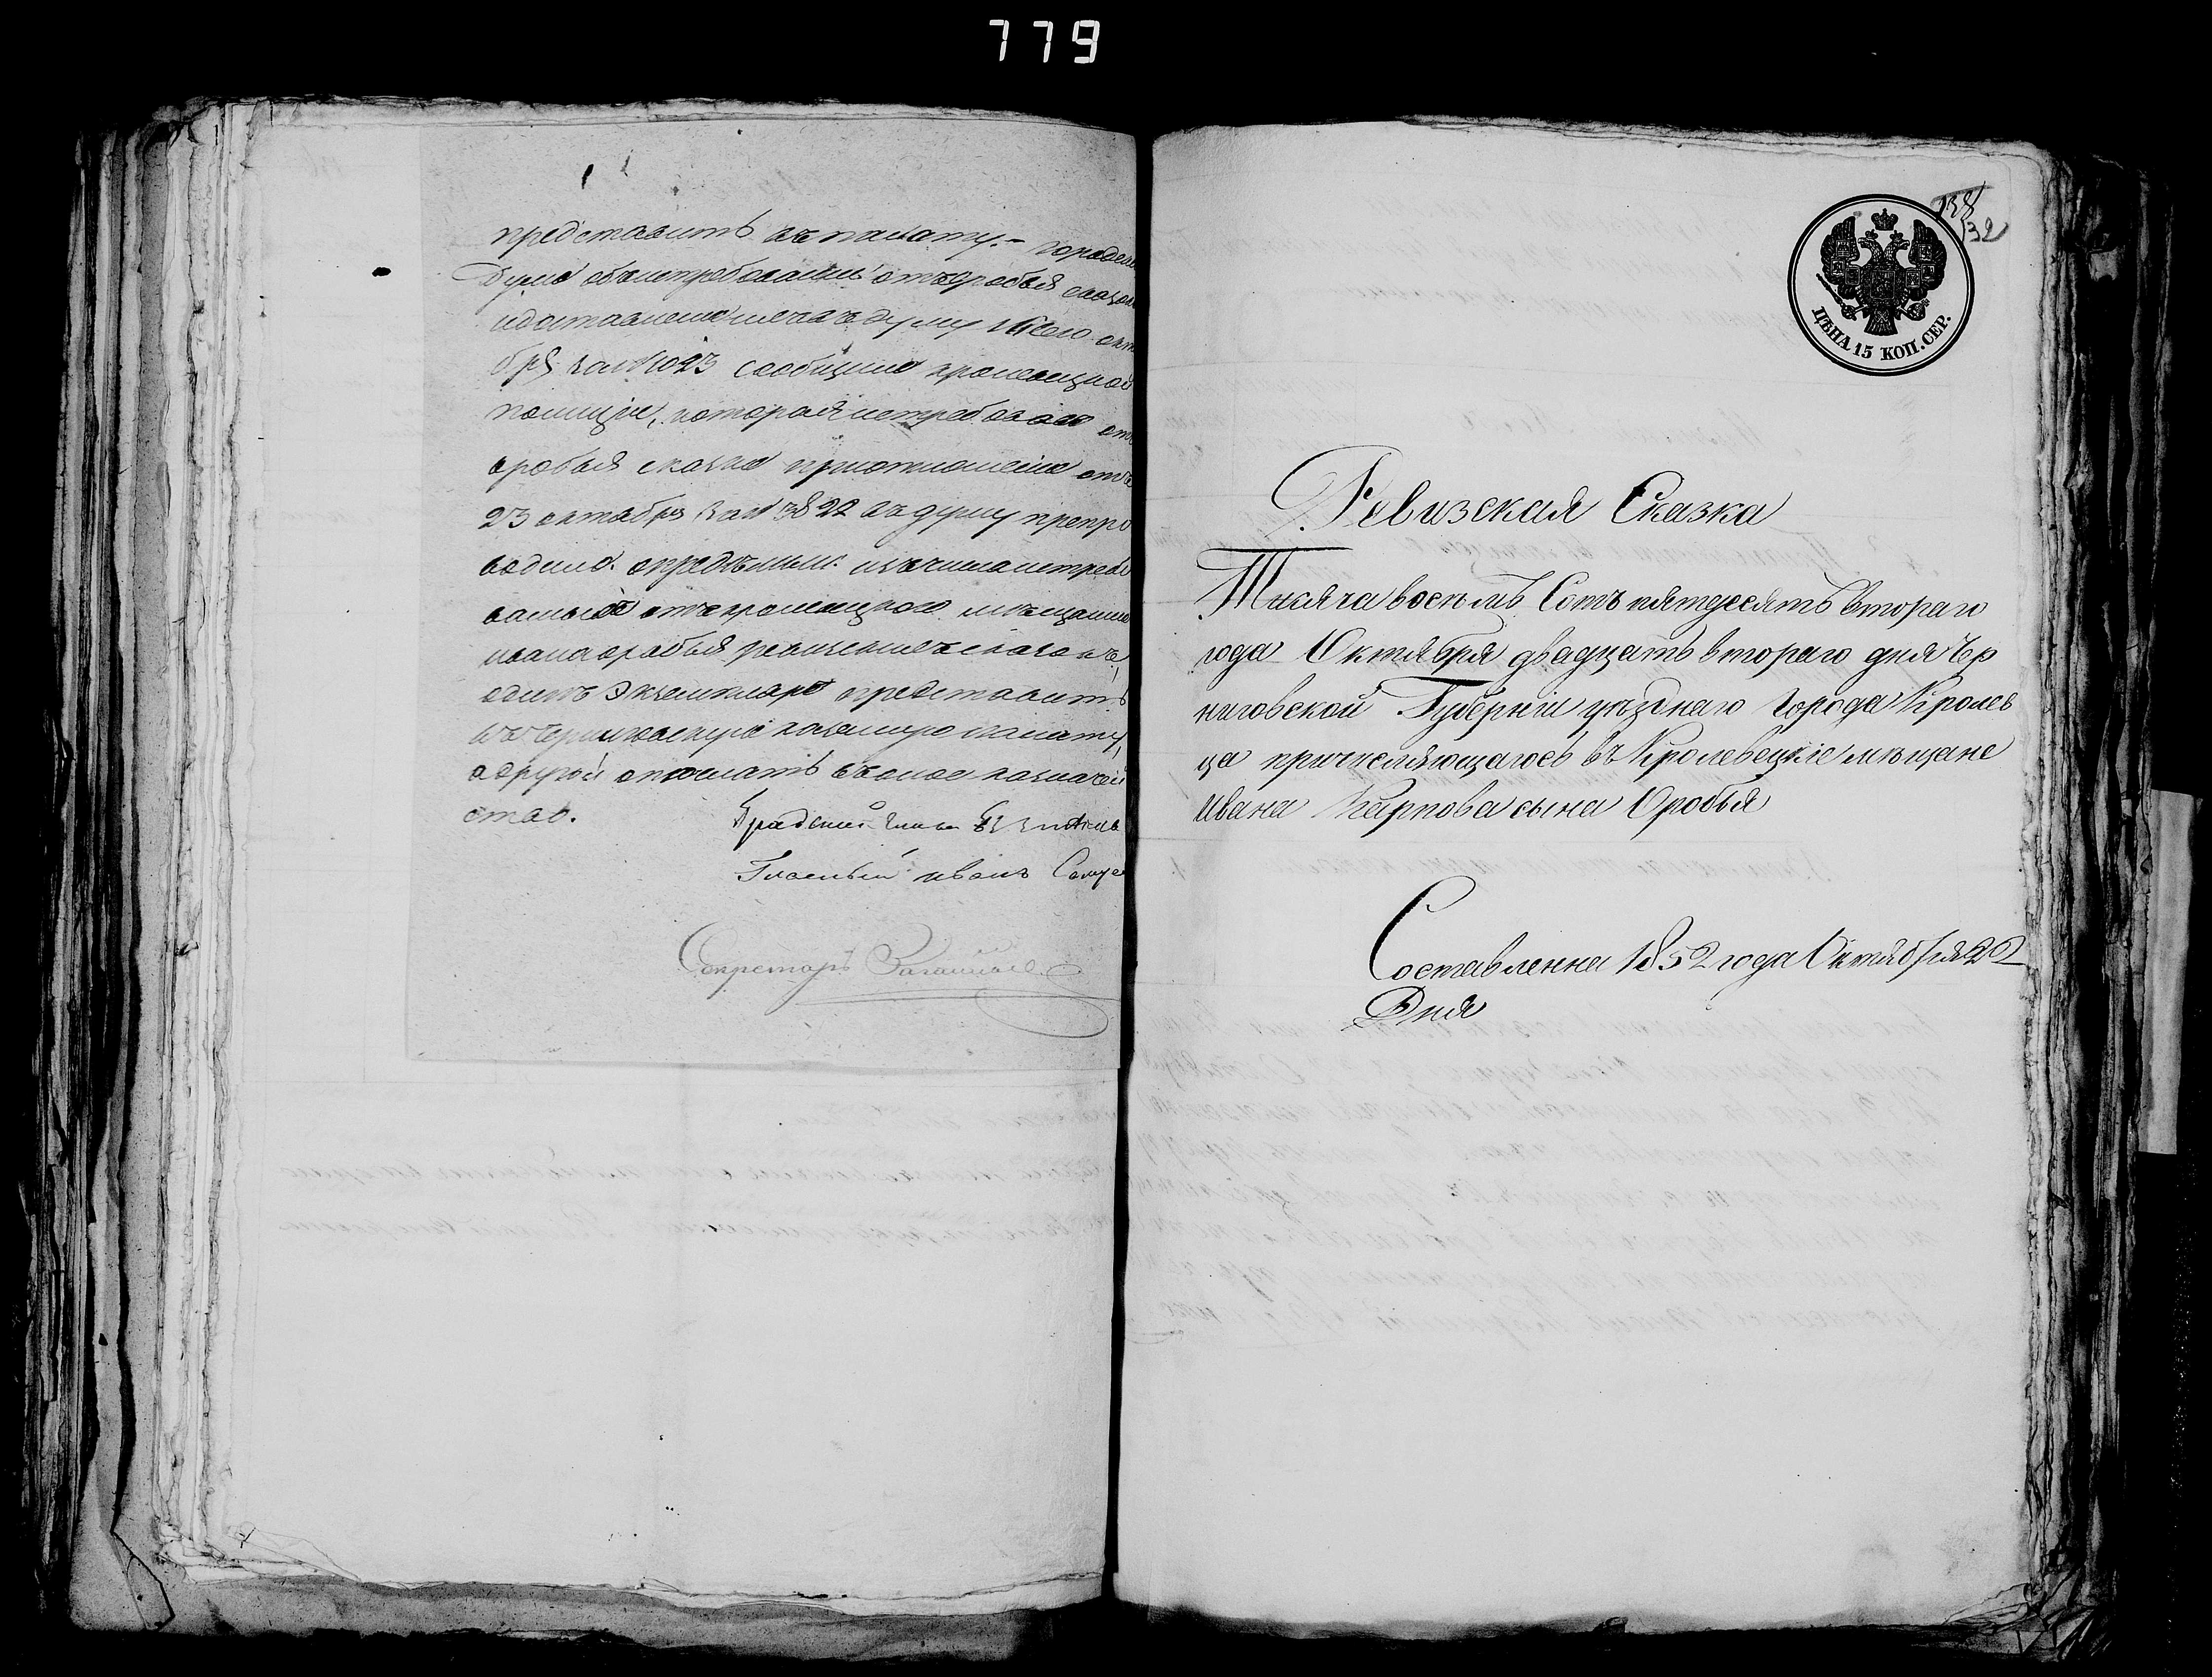 779
представить въ палату. – Городска
Дума объ истребовании отъ Оробья сказок
и доставлении ихъ въ думу 16 сего октя
бря за № 1023 сообщила кролевецкой
полиции, которая истребовавъ отъ
Оробья сказки при отношении отъ
23 октября за № 3822 въ думу препро
водила. Определили: изъ числа истребо
ванныхъ отъ кролевецкого мещанина
Ивана Оробья ревизскихъ сказокъ,
одинъ экземпляръ представить
въ Черниговскую казенную палату,
а другой отослать въ оное казначей
ство.
Градский Глава
Гласный иванъ
Секретарь
138
132
ЦѢНА 15 КОП. СЕР.
Ревизская Сказка
Тысяча восемь Сотъ пятдесятъ втораго
года Октября двадцать втораго дня Чер
ниговской Губерніи уѣзднаго Города Кролев
ца причисляющагося въ Кролевецкіе мѣщане
Ивана Карпова сына Оробья
Составленна 1852 года Октября 22
Дня